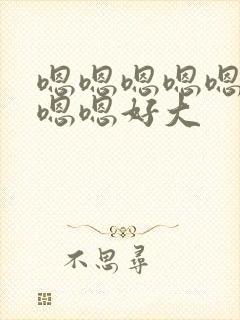 嗯嗯嗯嗯嗯
嗯嗯好大
不思尋